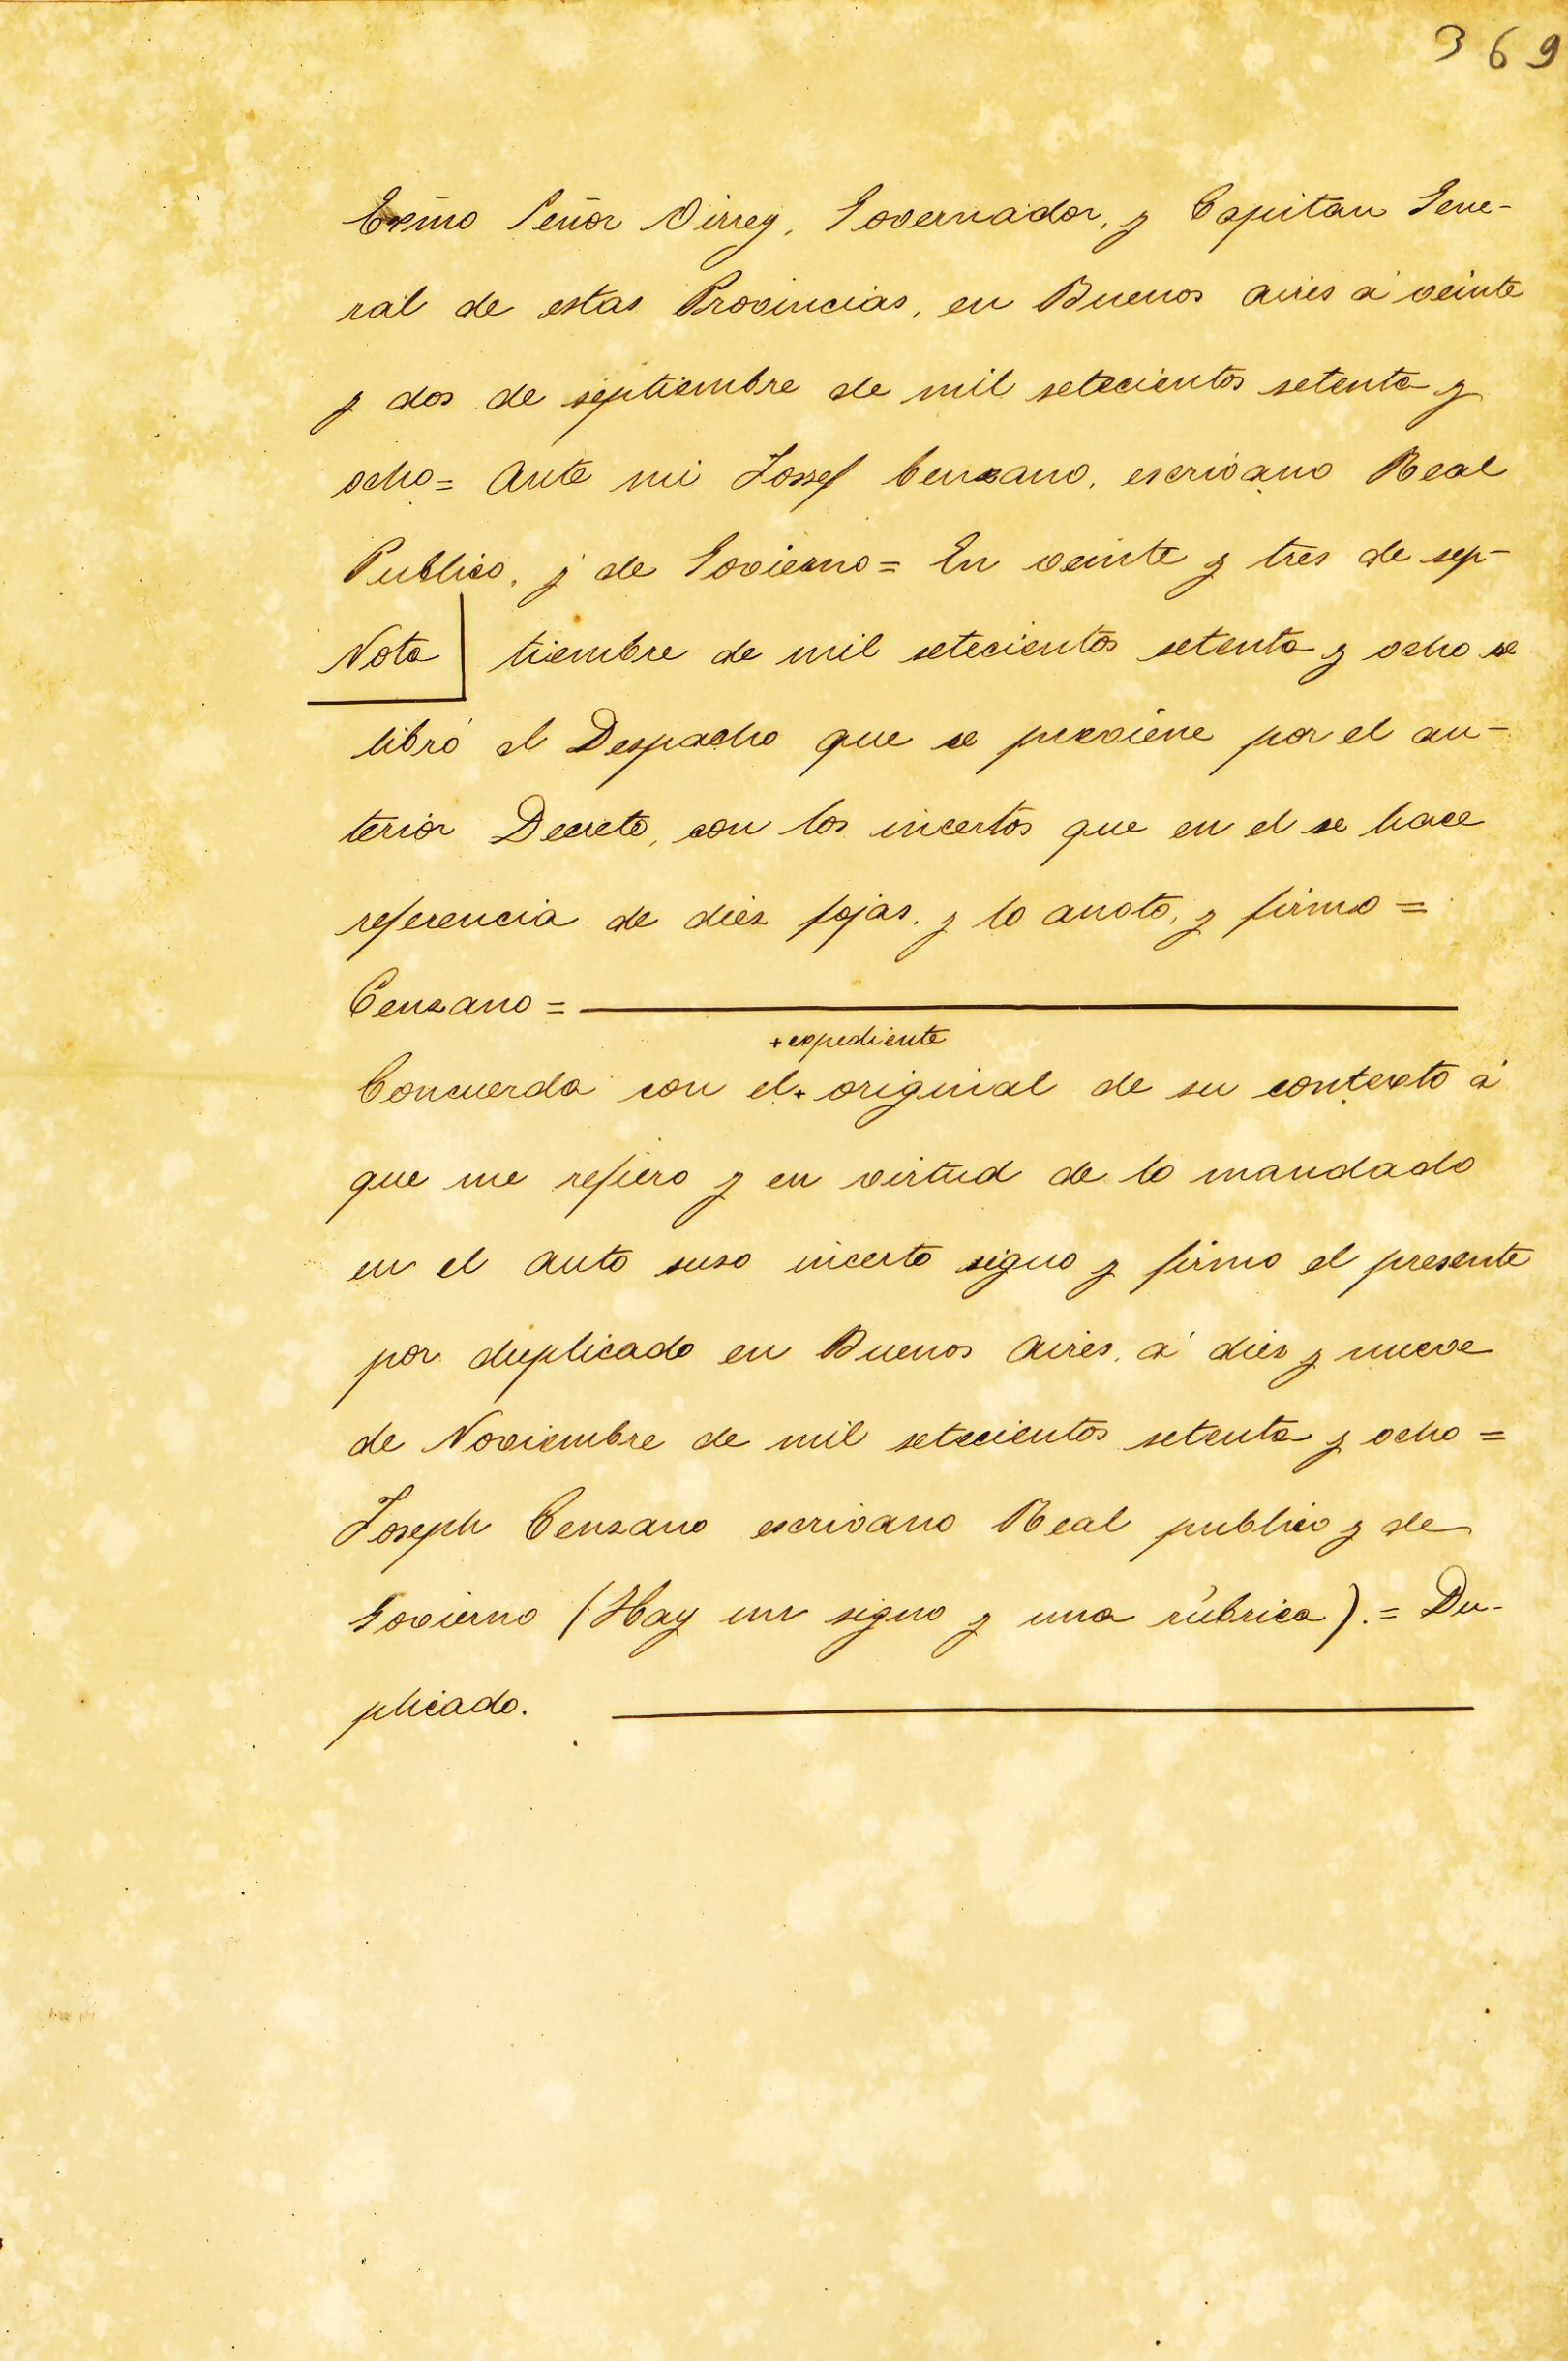 369
Exm̃o Señor Virrey, Governador, y Capitan Gene-
ral de estas Provincias, en Buenos Aires á veinte
y dos de septiembre de mil setecientos setenta y
ocho = Ante mi Jossef Cenzano, escrivano Real
Publico, y de Govierno = En veinte y tres de sep-
Nota tiembre de mil setecientos setenta y ocho se
libró el Despacho que se previene por el an-
terior Decreto, con los incertos que en el se hace
referencia de diez fojas, y lo anoto, y firmo =
Cenzano =
+ expediente
Concuerda con el + original de su contexto á
que me refiero y en virtud de lo mandado
en el auto suso incerto signo y firmo el presente
por duplicado en Buenos Aires, á diez y nueve
de Noviembre de mil setecientos setenta y ocho =
Joseph Cenzano escrivano Real publico y de
Govierno (Hay un signo y una rúbrica). = Du-
plicado.